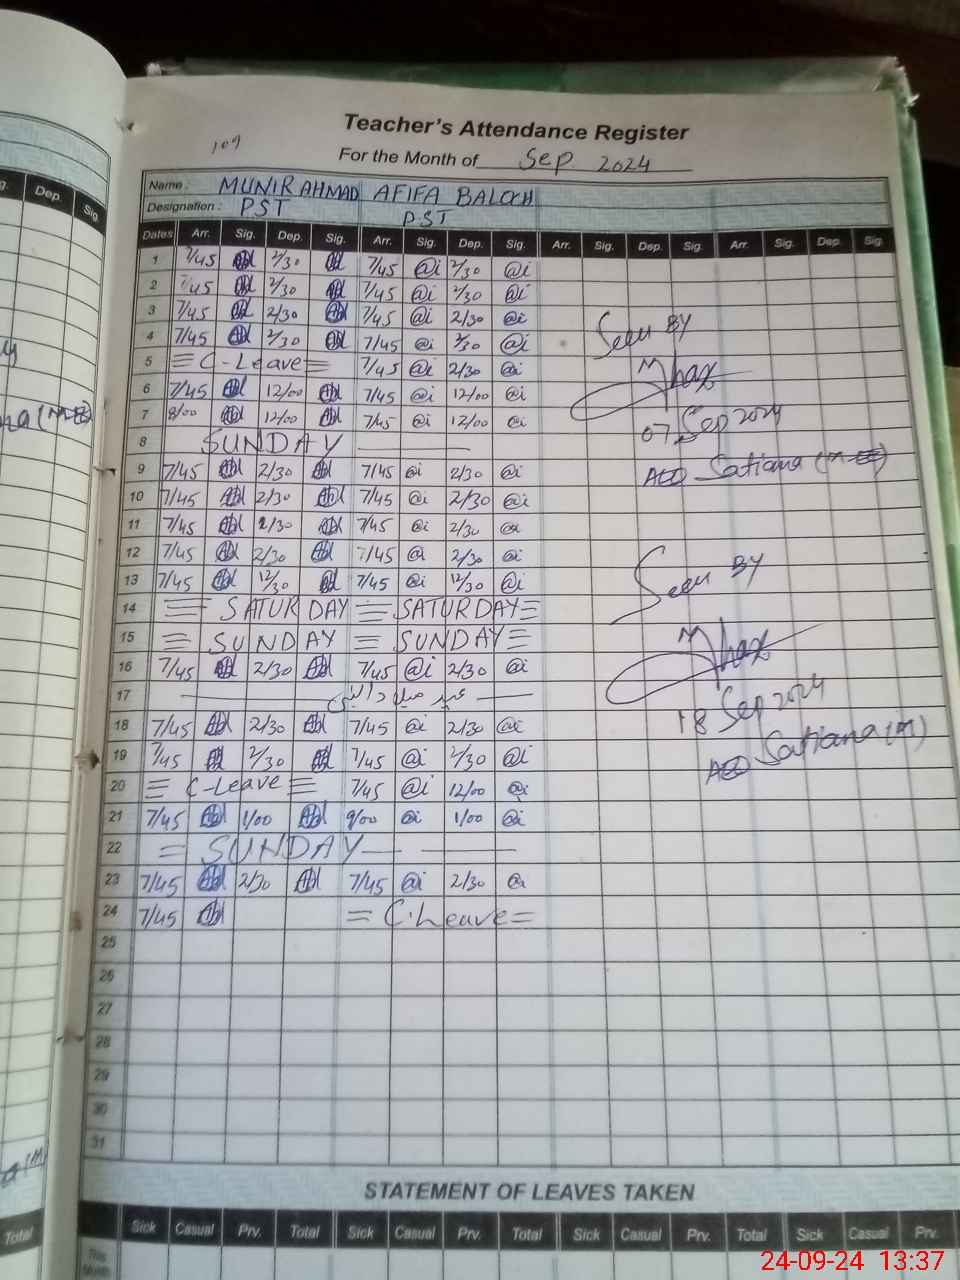 Teacher's Attendance Register
For the Month of Sep 2024
109
Name : MUNIR AHMAD AFIFA BALOCH
Designation : PST PST
Dates Arr. Sig. Dep. Sig. Arr. Sig. Dep. Sig. Arr. Sig. Dep. Sig. Arr. Sig. Dep. Sig.
1 7/45 2/30 7/45 @i 2/30 @i
2 7/45 2/30 7/45 @i 2/30 @i
3 7/45 2/30 7/45 @i 2/30 @i
4 7/45 2/30 7/45 @i 2/30 @i
5 C-Leave 7/45 @i 2/30 @i
6 7/45 12/00 7/45 @i 12/00 @i
7 8/00 12/00 7/45 @i 12/00 @i
8 SUNDAY
9 7/45 2/30 7/45 @i 2/30 @i
10 7/45 2/30 7/45 @i 2/30 @i
11 7/45 2/30 7/45 @i 2/30 @i
12 7/45 2/30 7/45 @i 2/30 @i
13 7/45 12/30 7/45 @i 12/30 @i
14 SATURDAY SATURDAY
15 SUNDAY SUNDAY
16 7/45 2/30 7/45 @i 2/30 @i
17 عید میلاد النبی
18 7/45 2/30 7/45 @i 2/30 @i
19 7/45 2/30 7/45 @i 2/30 @i
20 C-Leave 7/45 @i 12/00 @i
21 7/45 1/00 9/00 @i 1/00 @i
22 SUNDAY
23 7/45 2/30 7/45 @i 2/30 @i
24 7/45 C.Leave
25
26
27
28
29
30
31
Seen BY
07 Sep 2024
AEO Satiana
Seen BY
18 Sep 2024
AEO Satiana (M)
STATEMENT OF LEAVES TAKEN
Sick Casual Prv. Total Sick Casual Prv. Total Sick Casual Prv. Total Sick Casual Prv.
This
Dep. Sig
Total
24-09-24 13:37